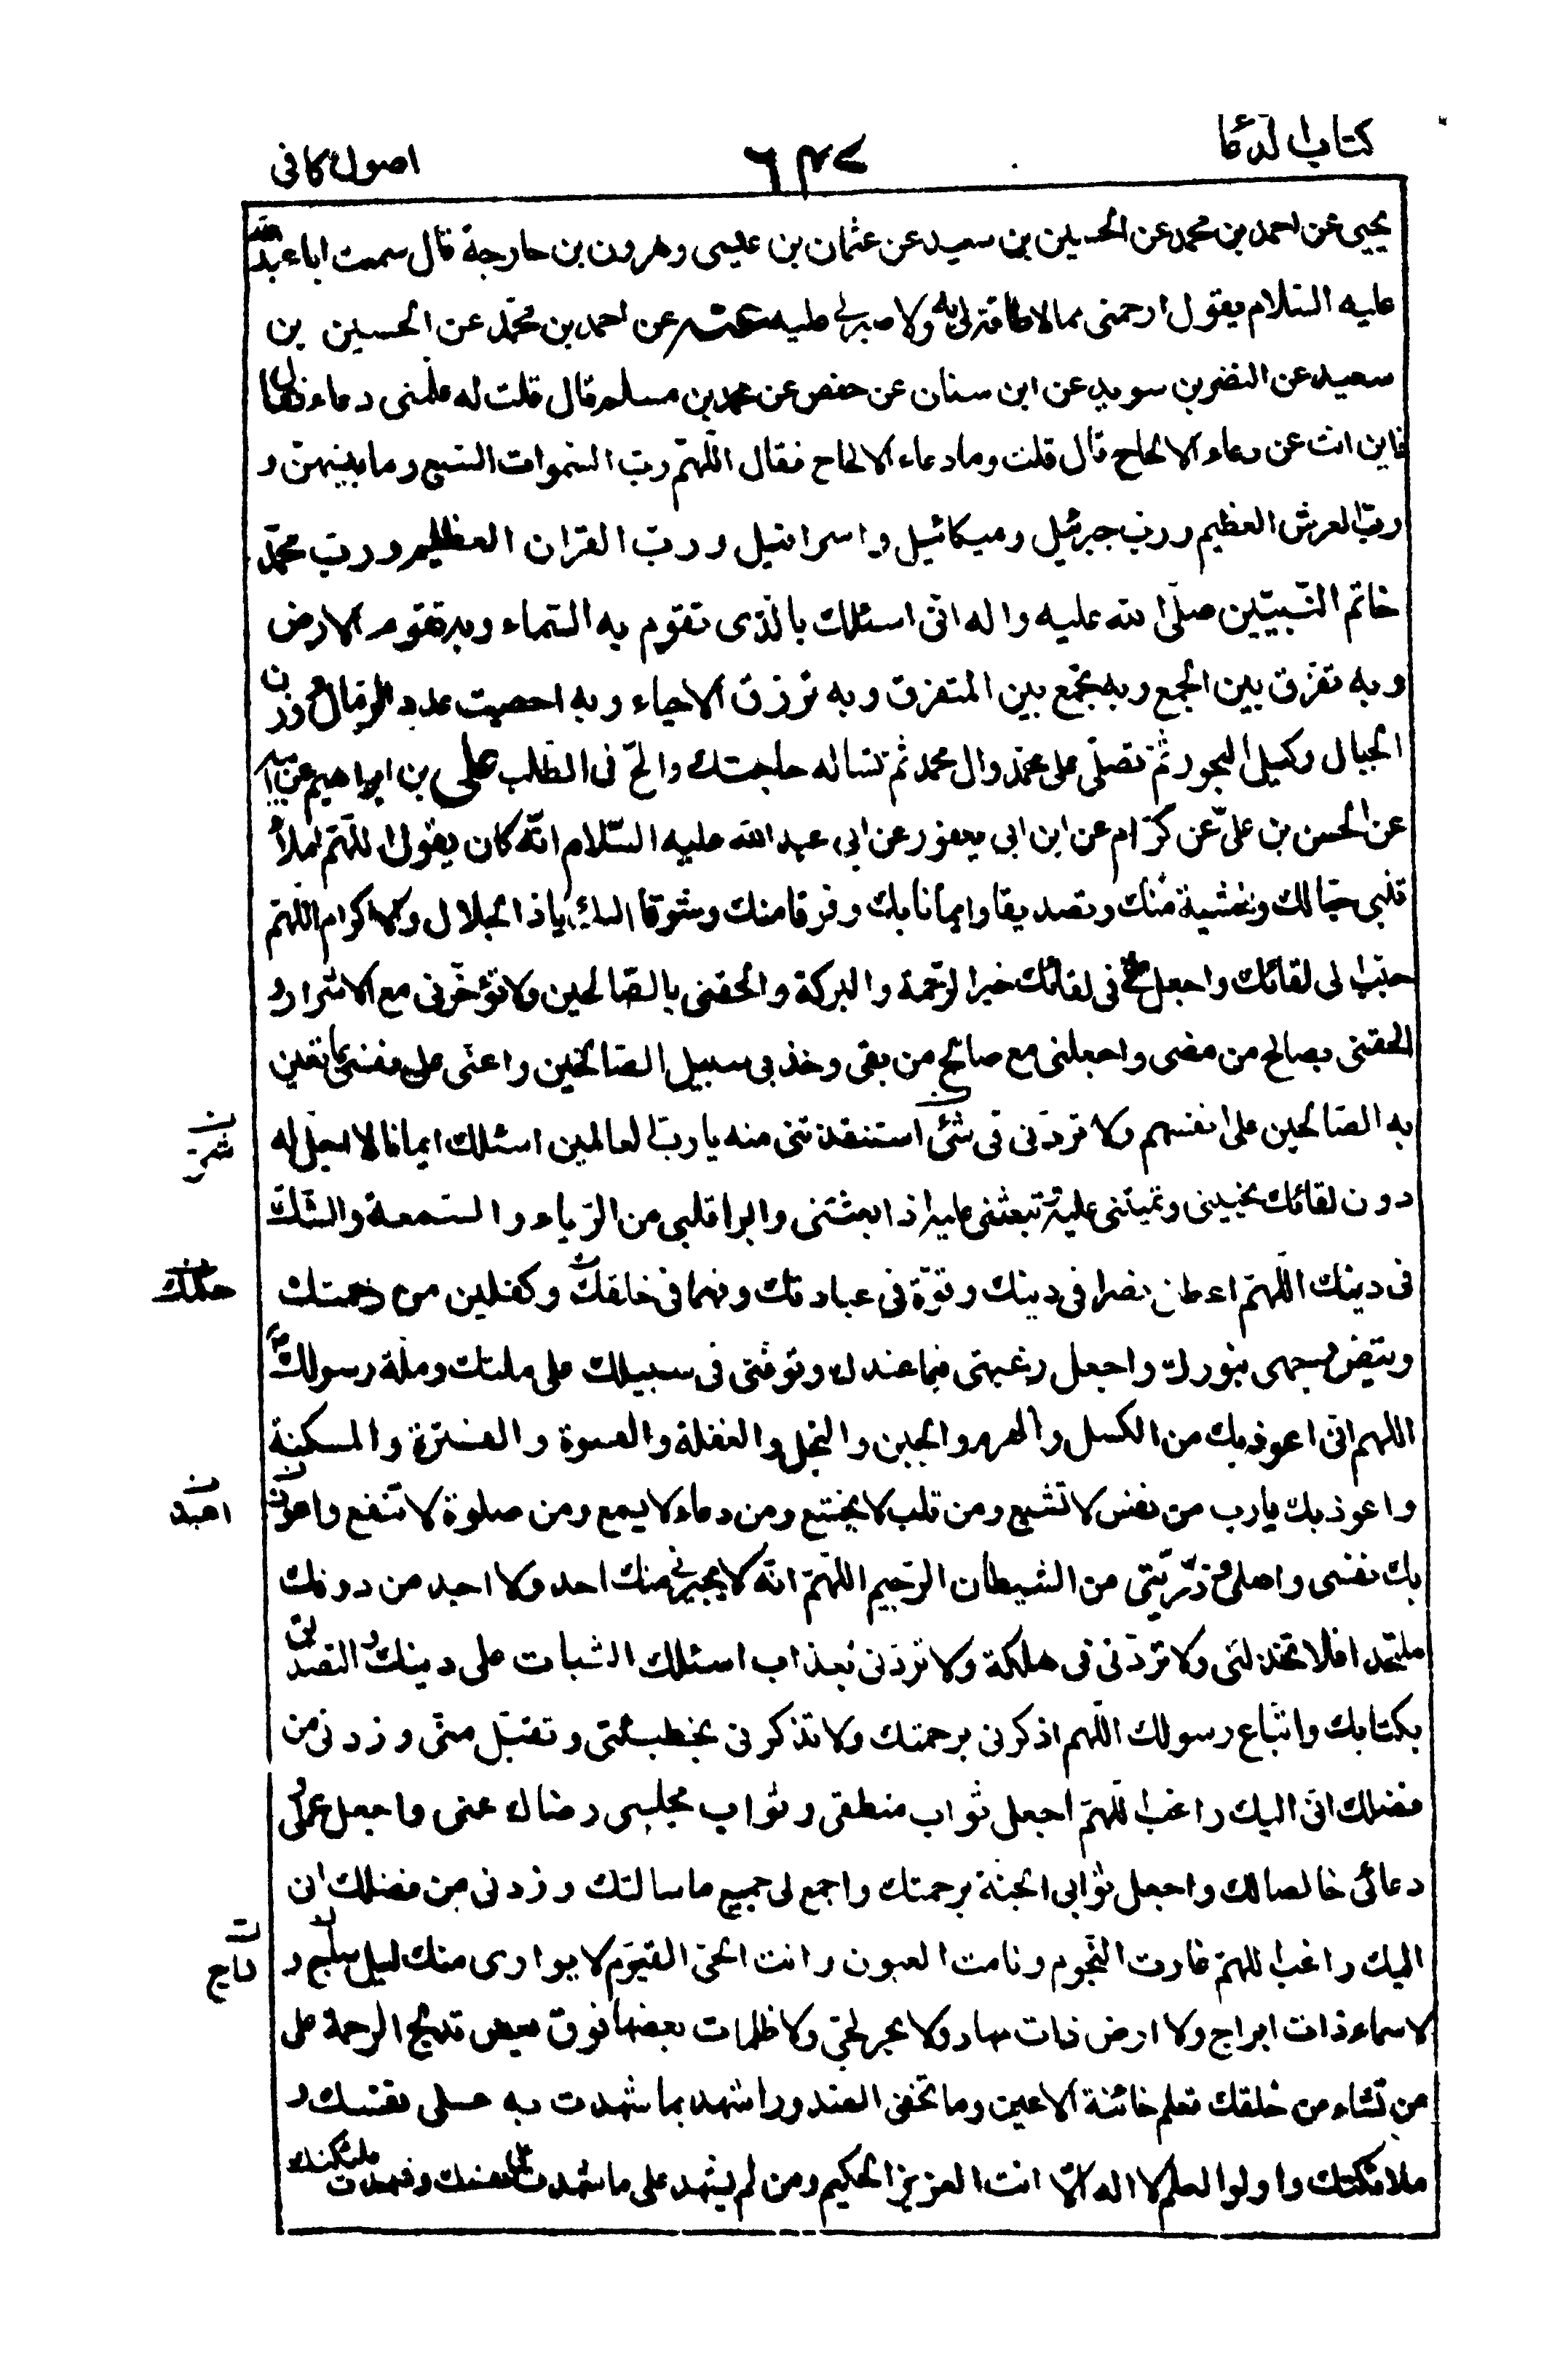 كتاب الدعا ٦٤٧ اصول كافى
يحيى عن احمد بن محمد عن الحسين بن سعيد عن عثمان بن عيسى وهرون بن خارجة قال سمعت ابا عبد الله
عليه السلام يقول ارحمنى مما لا طاقة لى به ولا صبر لى عليه عنه عن احمد بن محمد عن الحسين بن
سعيد عن النضر بن سويد عن ابن سنان عن حفص عن محمد بن مسلم قال قلت له علمنى دعاء فقال
فاين انت عن دعاء الالحاح قال قلت وما دعاء الالحاح فقال اللهم رب السموات السبع وما بينهن و
رب العرش العظيم ورب جبرئيل وميكائيل واسرافيل ورب القران العظيم ورب محمد
خاتم النبيين صلى الله عليه واله انى اسئلك بالذى تقوم به السماء وبه تقوم الارض
وبه تفرق بين الجمع وبه تجمع بين المتفرق وبه ترزق الاحياء وبه احصيت عدد الرمال ووزن
الجبال وكيل البحور ثم تصلى على محمد وال محمد ثم تساله حاجتك والح فى الطلب على بن ابراهيم عن ابيه
عن الحسن بن على عن كرام عن ابن ابى يعفور عن ابى عبد الله عليه السلام انه كان يقول اللهم املأ
قلبى حبا لك وخشية منك وتصديقا وايمانا بك وفرقا منك وشوقا اليك ياذا الجلال والاكرام اللهم
حبب الى لقائك واجعل لى فى لقائك خير الرحمة والبركة والحقنى بالصالحين ولا تؤخرنى مع الاشرار و
الحقنى بصالح من مضى واجعلنى مع صالح من بقى وخذ بى سبيل الصالحين واعنى على نفسى بما تعين
به الصالحين على انفسهم ولا تردنى فى شئ استنقذتنى منه يا رب العالمين اسئلك ايمانا لا اجل له
دون لقائك تحيينى وتميتنى عليه تبعثنى عليه اذا بعثتنى وابرا قلبى من الرياء والسمعة والشك
فى دينك اللهم اعطنى نصرا فى دينك وقوة فى عبادتك وفهما فى خلقك وكفلين من رحمتك
وبيض وجهى بنورك واجعل رغبتى فيما عندك وتوفنى فى سبيلك على ملتك وملة رسولك
اللهم انى اعوذ بك من الكسل والهرم والجبن والبخل والغفلة والقسوة والفترة والمسكنة
واعوذ بك يا رب من نفس لا تشبع ومن قلب لا يخشع ومن دعاء لا يسمع ومن صلوة لا تنفع واعوذ
بك نفسى واهلى وذريتى من الشيطان الرجيم اللهم انه لا يجيرنى منك احد ولا اجد من دونك
ملتحدا فلا تخذلنى ولا تردنى فى هلكة ولا تردنى بعذاب اسئلك الثبات على دينك والتصديق
بكتابك واتباع رسولك اللهم اذكرنى برحمتك ولا تذكرنى بخطيئتى وتقبل منى وزدنى من
فضلك انى اليك راغب اللهم اجعل ثواب منطقى وثواب مجلسى رضاك عنى واجعل عملى و
دعائى خالصا لك واجعل ثوابى الجنة برحمتك واجمع لى جميع ما سالتك وزدنى من فضلك انى
اليك راغب اللهم غارت النجوم ونامت العيون وانت الحى القيوم لا يوارى منك ليل ساج و
لا سماء ذات ابراج ولا ارض ذات مهاد ولا بحر لجى ولا ظلمات بعضها فوق بعض تدلج الرحمة على
من تشاء من خلقك تعلم خائنة الاعين وما تخفى الصدور اشهد بما شهدت به على نفسك و
ملائكتك واولوا العلم لا اله الا انت العزيز الحكيم ومن لم يشهد على ما شهدت على نفسك وشهدت ملئكتك
اعيذ
داج